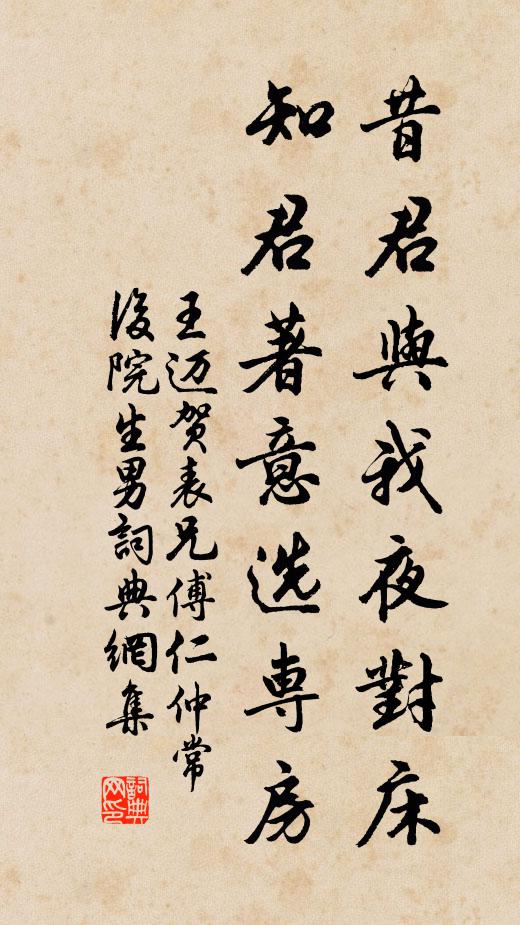 昔君與我夜對床
知君著意选専房
王迈贺表兄傅仁仲常
後院生男詞典網集
詞典网印